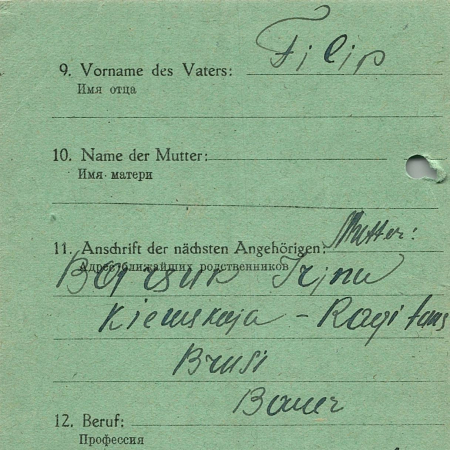 9. Vorname des Vaters: Filip
Имя отца
10. Name der Mutter:
Имя матери
11. Anschrift der nächsten Angehörigen: Mutter:
Адрес ближайших родственников
Kiewskaja - Ragi
Brusi
12. Beruf: Bauer
Профессия